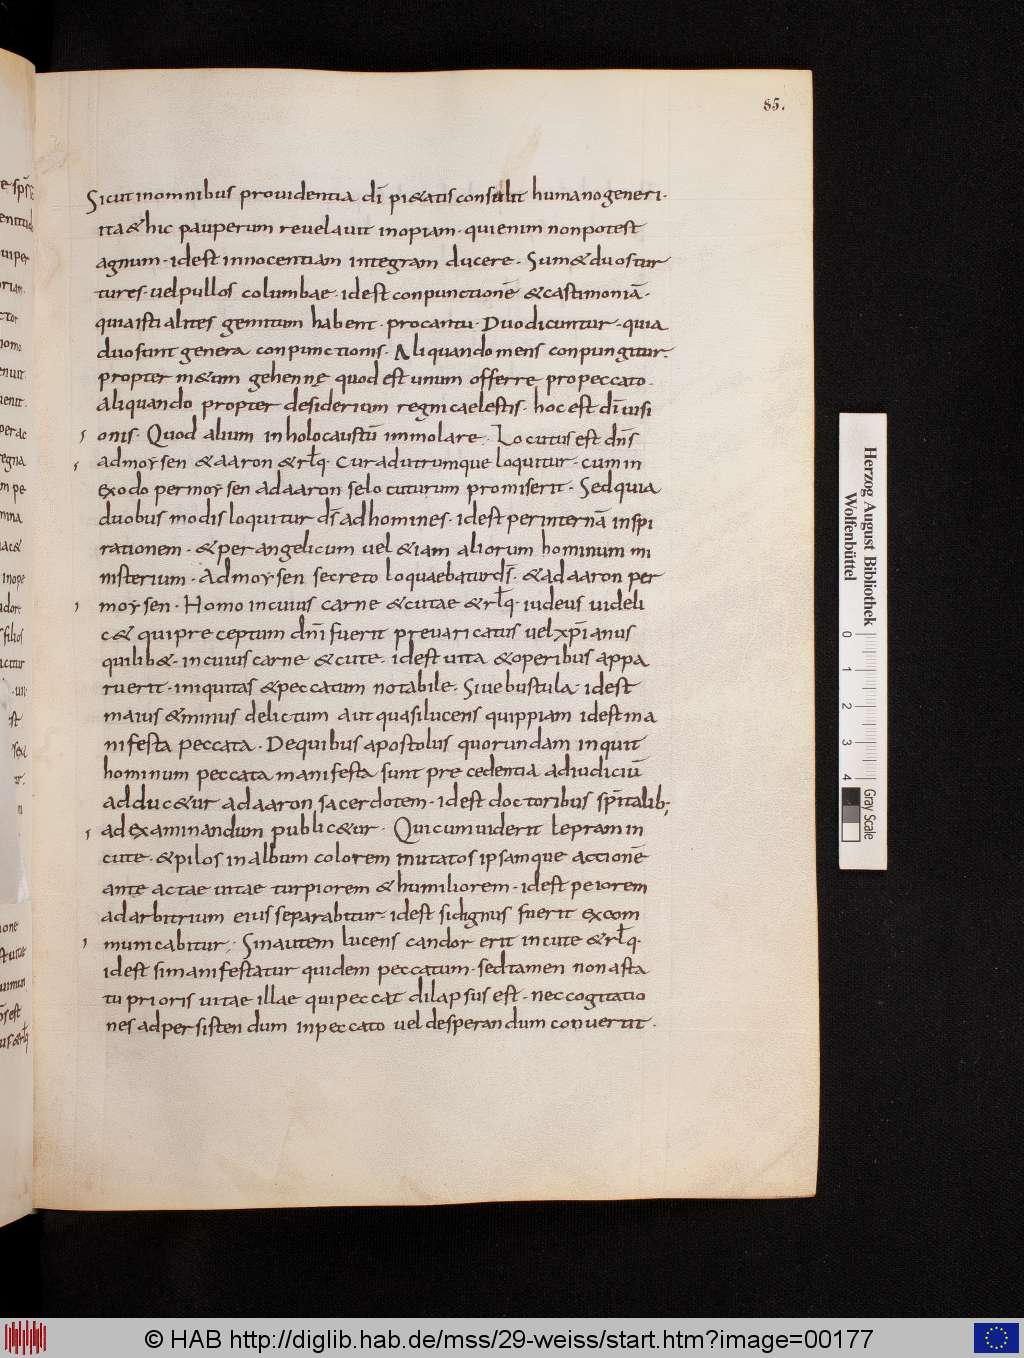 85.
Sicut in omnibus prouidentia dī pi&atis consulit humano generi·
ita & hic pauperum reuelauit inopiam· qui enim non potest
agnum· id est innocentiam integram ducere· Sum& duos tur
tures· uel pullos columbae· id est conpunctionē & castimoniā·
quia isti alites gemitum habent· pro cantu· Duo dicuntur· quia
duo sunt genera conpunctionis· Aliquando mens conpungitur·
propter m&um gehennę quod est unum offerre pro peccato·
Aliquando propter desiderium regni caelestis· hoc est dī uisi
onis· Quod alium in holocaustū immolare· Locutus est dn̄s
ad moysen & aaron & rłq· Cur ad utrumque loquitur· cum in
exodo per moysen ad aaron se locuturum promiserit· Sed quia
duobus modis loquitur ds̄ ad homines· id est per internā inspi
rationem· & per angelicum uel &iam aliorum hominum mi
nisterium· Ad moysen secreto loquaebatur ds̄· & ad aaron per
moysen· Homo in cuius carne & cutae & rłq· iudeus uideli
c& qui preceptum dn̄i fuerit preuaricatus uel xp̄ianus
quilib&· in cuius carne & cute· id est uita & operibus appa
ruerit· iniquitas & peccatum notabile· Siue bustula id est
maius & minus delictum aut quasi lucens quippiam id est ma
nifesta peccata· De quibus apostolus quorundam inquit
hominum peccata manifesta sunt precedentia ad iudiciū
adduc&ur ad aaron sacerdotem· id est doctoribus sp̄italib;
ad examinandum public&ur· Qui cum uiderit lepram in
cute· & pilos in album colorem mutatos ipsamque accionē
ante actae uitae turpiorem & humiliorem· id est peiorem
ad arbitrium eius separabitur· id est si dignus fuerit excom
municabitur· Sin autem lucens candor erit in cute & rłq·
id est si manifestatur quidem peccatum· sed tamen non asta
tu prioris uitae illae qui peccat dilapsus est· nec cogitatio
nes ad persistendum in peccato uel desperandum conuertit·
Herzog August Bibliothek
Wolfenbüttel
0 1 2 3 4
Gray Scale
© HAB http://diglib.hab.de/mss/29-weiss/start.htm?image=00177